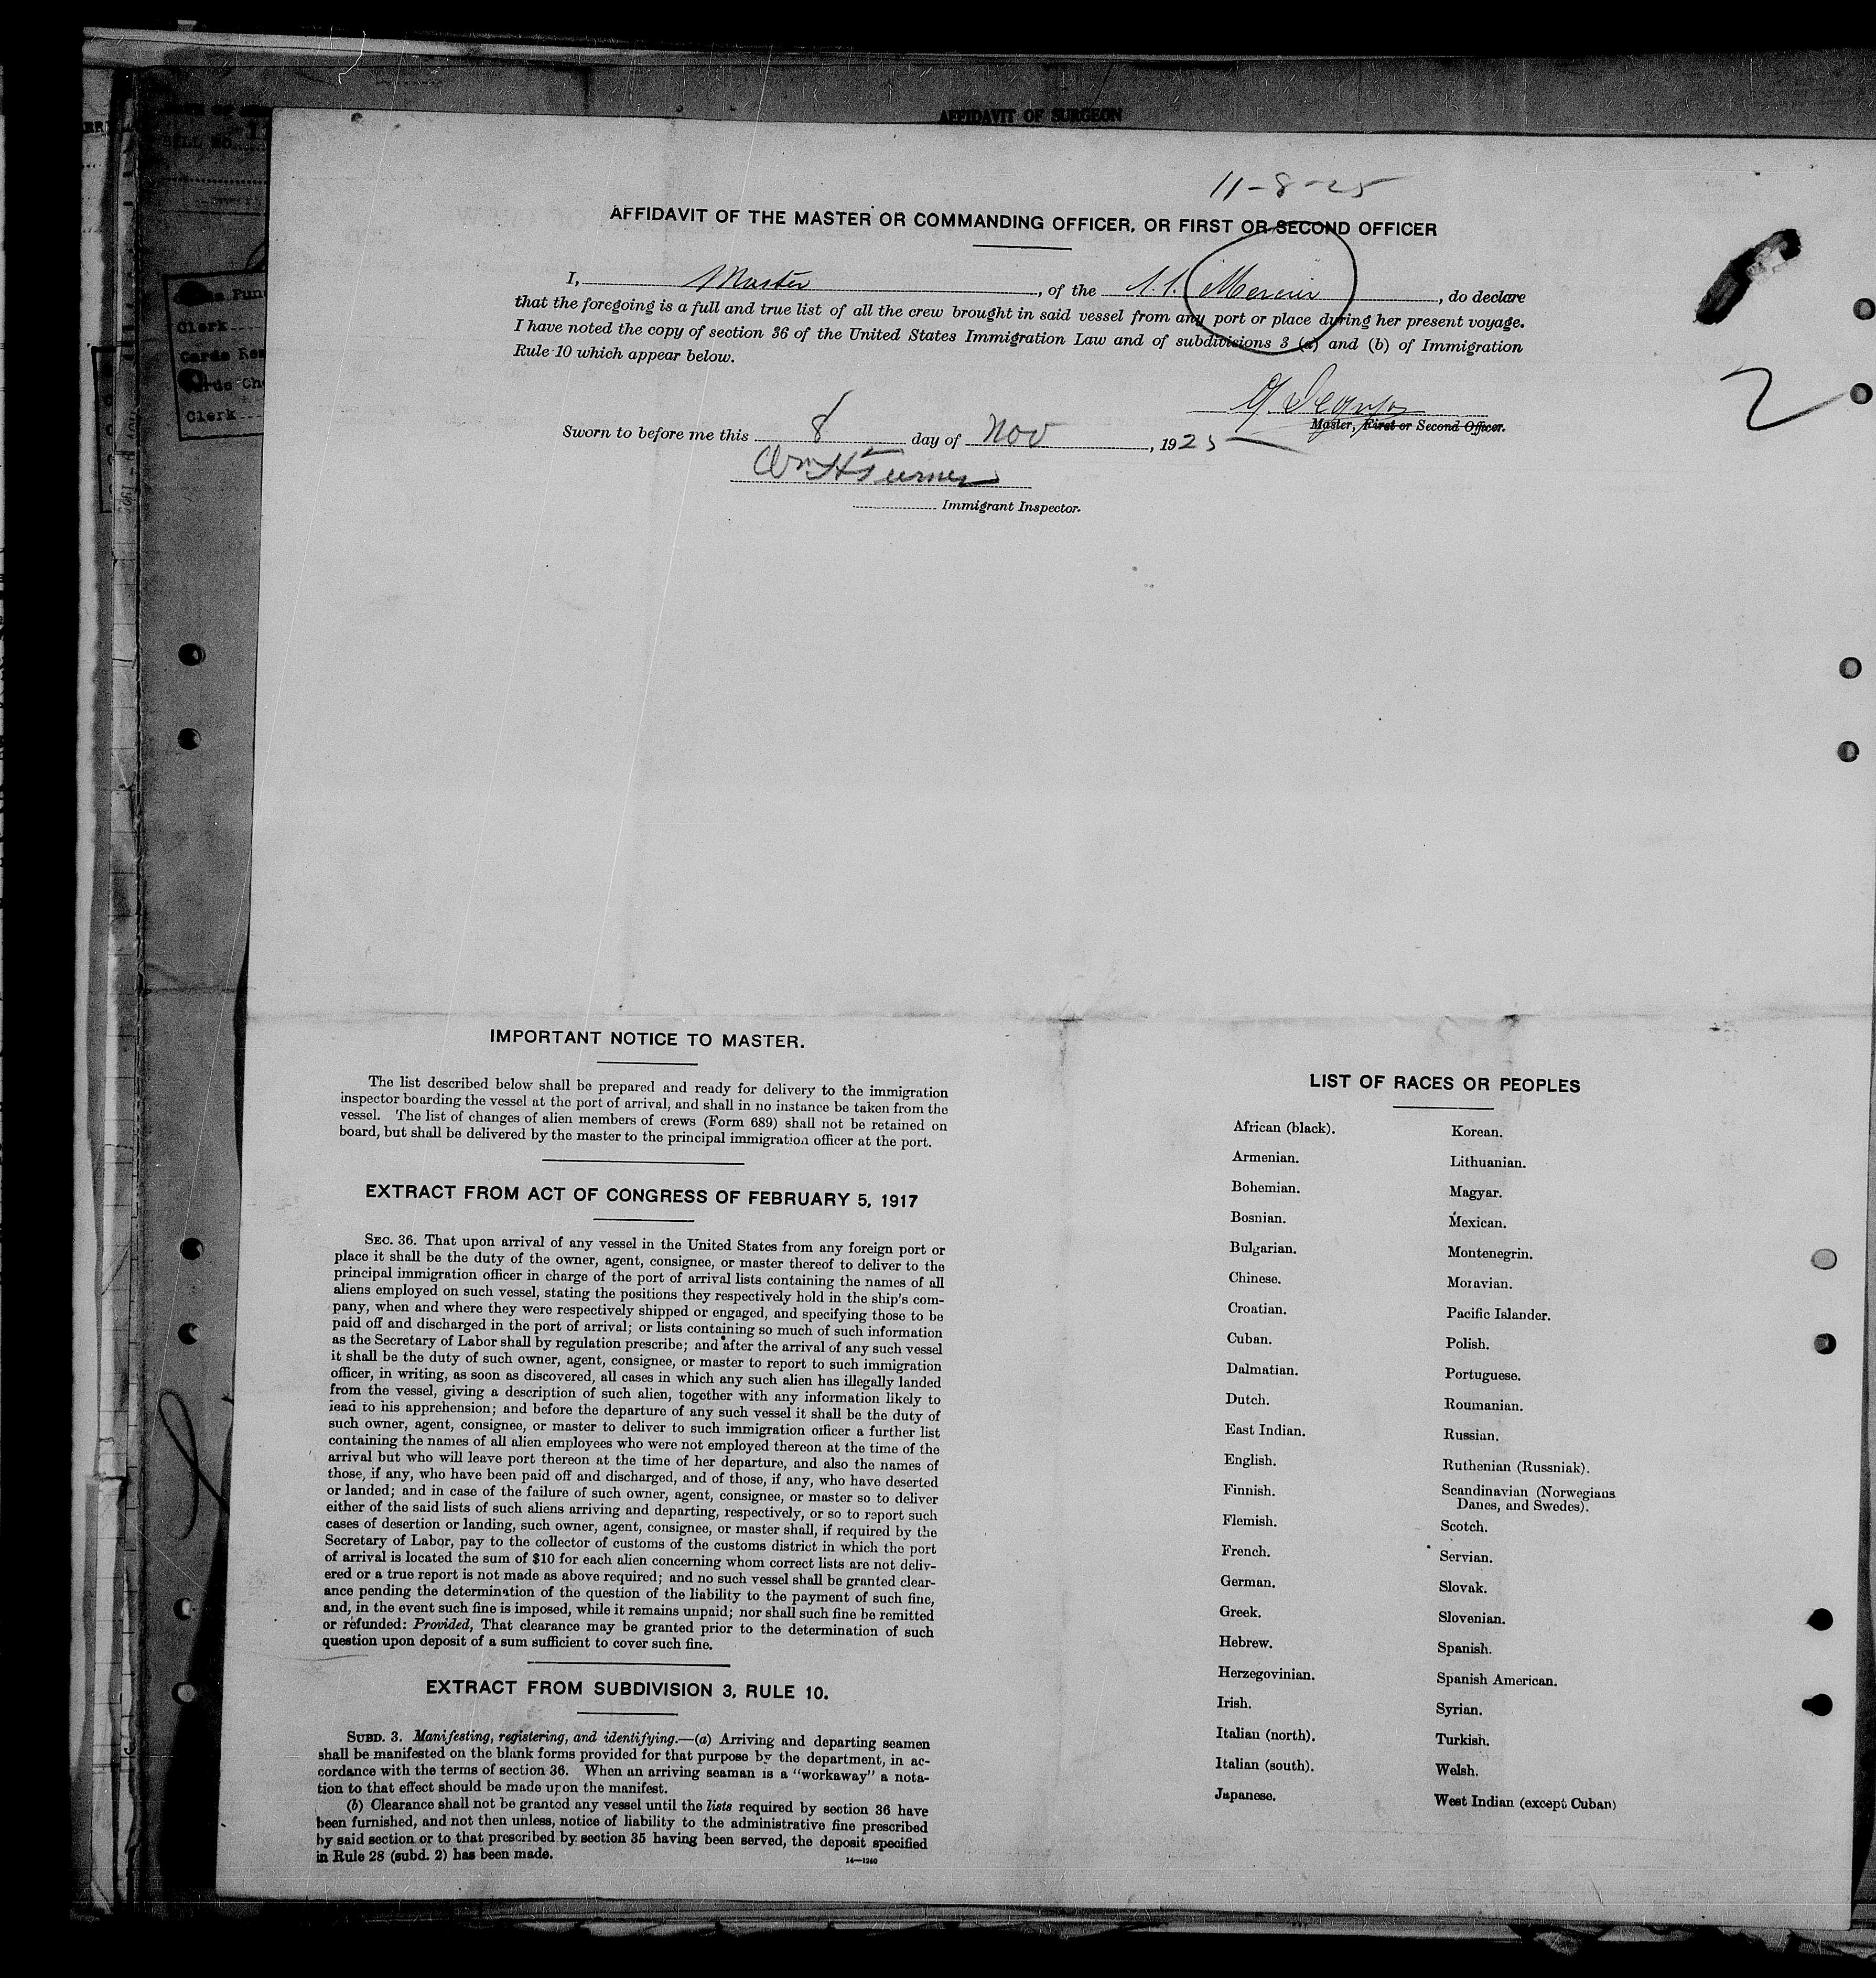 AFFIDAVIT OF SURGEON
11-8-25
AFFIDAVIT OF THE MASTER OR COMMANDING OFFICER, OR FIRST OR SECOND OFFICER
I, Master, of the S.S. Mercier, do declare
that the foregoing is a full and true list of all the crew brought in said vessel from any port or place during her present voyage.
I have noted the copy of section 36 of the United States Immigration Law and of subdivisions 3 (a) and (b) of Immigration
Rule 10 which appear below.
Master, First or Second Officer.
Sworn to before me this 8 day of Nov, 1925
Wm H Turner
Immigrant Inspector.
2
Clerk
Clerk
IMPORTANT NOTICE TO MASTER.
The list described below shall be prepared and ready for delivery to the immigration
inspector boarding the vessel at the port of arrival, and shall in no instance be taken from the
vessel. The list of changes of alien members of crews (Form 689) shall not be retained on
board, but shall be delivered by the master to the principal immigration officer at the port.
EXTRACT FROM ACT OF CONGRESS OF FEBRUARY 5, 1917
SEC. 36. That upon arrival of any vessel in the United States from any foreign port or
place it shall be the duty of the owner, agent, consignee, or master thereof to deliver to the
principal immigration officer in charge of the port of arrival lists containing the names of all
aliens employed on such vessel, stating the positions they respectively hold in the ship's com-
pany, when and where they were respectively shipped or engaged, and specifying those to be
paid off and discharged in the port of arrival; or lists containing so much of such information
as the Secretary of Labor shall by regulation prescribe; and after the arrival of any such vessel
it shall be the duty of such owner, agent, consignee, or master to report to such immigration
officer, in writing, as soon as discovered, all cases in which any such alien has illegally landed
from the vessel, giving a description of such alien, together with any information likely to
lead to his apprehension; and before the departure of any such vessel it shall be the duty of
such owner, agent, consignee, or master to deliver to such immigration officer a further list
containing the names of all alien employees who were not employed thereon at the time of the
arrival but who will leave port thereon at the time of her departure, and also the names of
those, if any, who have been paid off and discharged, and of those, if any, who have deserted
or landed; and in case of the failure of such owner, agent, consignee, or master so to deliver
either of the said lists of such aliens arriving and departing, respectively, or so to report such
cases of desertion or landing, such owner, agent, consignee, or master shall, if required by the
Secretary of Labor, pay to the collector of customs of the customs district in which the port
of arrival is located the sum of $10 for each alien concerning whom correct lists are not deliv-
ered or a true report is not made as above required; and no such vessel shall be granted clear-
ance pending the determination of the question of the liability to the payment of such fine,
and, in the event such fine is imposed, while it remains unpaid; nor shall such fine be remitted
or refunded: Provided, That clearance may be granted prior to the determination of such
question upon deposit of a sum sufficient to cover such fine.
EXTRACT FROM SUBDIVISION 3, RULE 10.
SUBD. 3. Manifesting, registering, and identifying.—(a) Arriving and departing seamen
shall be manifested on the blank forms provided for that purpose by the department, in ac-
cordance with the terms of section 36. When an arriving seaman is a "workaway" a nota-
tion to that effect should be made upon the manifest.
(b) Clearance shall not be granted any vessel until the lists required by section 36 have
been furnished, and not then unless, notice of liability to the administrative fine prescribed
by said section or to that prescribed by section 35 having been served, the deposit specified
in Rule 28 (subd. 2) has been made.
14—1240
LIST OF RACES OR PEOPLES
African (black).
Armenian.
Bohemian.
Bosnian.
Bulgarian.
Chinese.
Croatian.
Cuban.
Dalmatian.
Dutch.
East Indian.
English.
Finnish.
Flemish.
French.
German.
Greek.
Hebrew.
Herzegovinian.
Irish.
Italian (north).
Italian (south).
Japanese.
Korean.
Lithuanian.
Magyar.
Mexican.
Montenegrin.
Moravian.
Pacific Islander.
Polish.
Portuguese.
Roumanian.
Russian.
Ruthenian (Russniak).
Scandinavian (Norwegians
Danes, and Swedes).
Scotch.
Servian.
Slovak.
Slovenian.
Spanish.
Spanish American.
Syrian.
Turkish.
Welsh.
West Indian (except Cuban)